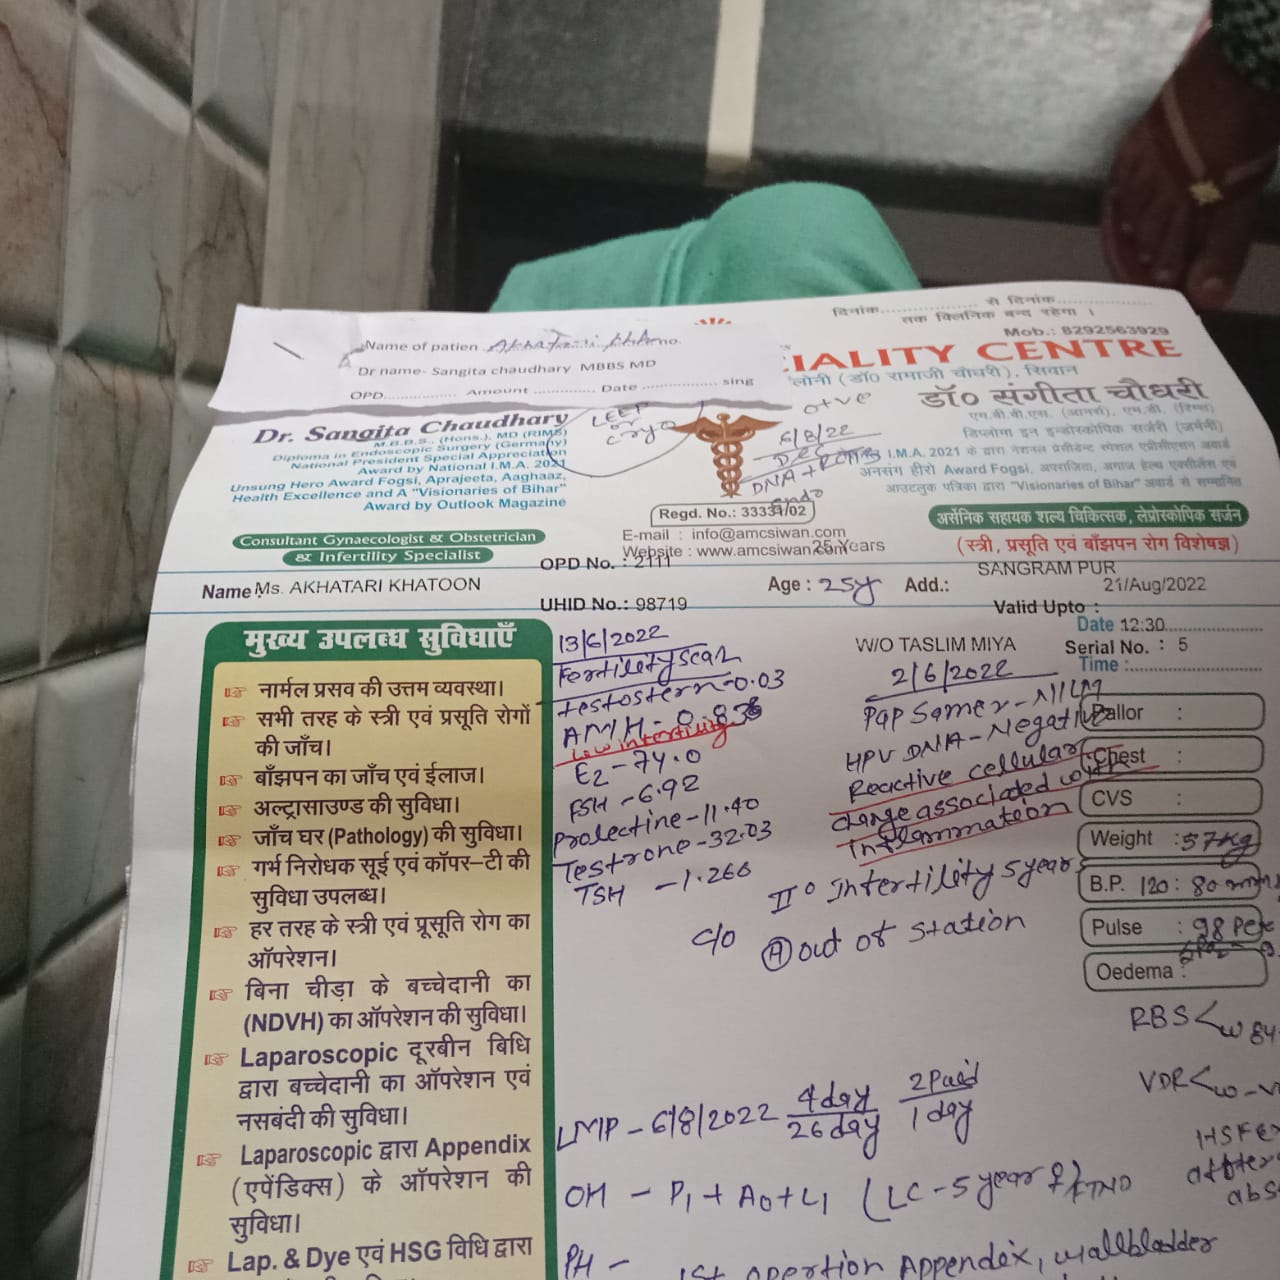 दिनांक.................... से दिनांक....................
तक क्लिनिक बन्द रहेगा ।
Mob.: 8292563929
Name of patien Akhatari kha no.
Dr name- Sangita chaudhary MBBS MD
OPD................. Amount ............... Date ............... sing
IALITY CENTRE
लोनी (डॉ० रामाजी चौधरी), सिवान
Dr. Sangita Chaudhary
M.B.B.S., (Hons.), MD (RIMS)
Diploma in Endoscopic Surgery (Germany)
National President Special Appreciation
Award by National I.M.A. 2021
Unsung Hero Award Fogsi, Aprajeeta, Aaghaaz,
Health Excellence and A "Visionaries of Bihar"
Award by Outlook Magazine
Consultant Gynaecologist & Obstetrician
& Infertility Specialist
LEEP
or
Cryo
O+ve
6/8/22
DNA +
endo
डॉ० संगीता चौधरी
एम.बी.बी.एस. (आनर्स), एम.डी. (रिम्स)
डिप्लोमा इन इन्डोस्कोपिक सर्जरी (जर्मनी)
I.M.A. 2021 के द्वारा नेशनल प्रेसीडेन्ट स्पेशल एप्रीसीएसन अवार्ड
अनसंग हीरो Award Fogsi, अपराजिता, अगाज हेल्थ एक्सीलेंस एवं
आउटलुक पत्रिका द्वारा "Visionaries of Bihar" अवार्ड से सम्मानित
अर्सेनिक सहायक शल्य चिकित्सक, लेप्रोस्कोपिक सर्जन
(स्त्री, प्रसूति एवं बाँझपन रोग विशेषज्ञ)
Regd. No.: 33331/02
E-mail : info@amcsiwan.com
Website : www.amcsiwan.com
25 Years
OPD No. : 2111
SANGRAM PUR
Name : Ms. AKHATARI KHATOON
Age : 25y
Add.:
21/Aug/2022
UHID No.: 98719
Valid Upto :
Date 12:30
W/O TASLIM MIYA
Serial No. : 5
Time :
मुख्य उपलब्ध सुविधाएँ
नार्मल प्रसव की उत्तम व्यवस्था।
सभी तरह के स्त्री एवं प्रसूति रोगों
की जाँच।
बाँझपन का जाँच एवं ईलाज।
अल्ट्रासाउण्ड की सुविधा।
जाँच घर (Pathology) की सुविधा।
गर्भ निरोधक सूई एवं कॉपर-टी की
सुविधा उपलब्ध।
हर तरह के स्त्री एवं प्रसूति रोग का
ऑपरेशन।
बिना चीड़ा के बच्चेदानी का
(NDVH) का ऑपरेशन की सुविधा।
Laparoscopic दूरबीन बिधि
द्वारा बच्चेदानी का ऑपरेशन एवं
नसबंदी की सुविधा।
Laparoscopic द्वारा Appendix
(एपेंडिक्स) के ऑपरेशन की
सुविधा।
Lap. & Dye एवं HSG विधि द्वारा
13/6/2022
Fertility scan
testostern-0.03
AMH-0.8
Low intertility
E2-74.0
FSH-6.92
Prolectine-11.40
Testrone-32.03
TSH -1.266
2/6/2022
Pap Samer-NILM
HPV DNA-Negative
Reactive cellular
change associaded with
Inflammateion
Pallor :
Chest :
CVS :
Weight : 57kg
B.P. 120: 80 mm
Pulse : 98 Per
Oedema :
II° Intertility 5 year
C/O (A) Out of Station
RBS < w 84
VDR < w-v
LMP-6/8/2022 4day/26day 2Paid/1day
OH - P1+A0+L1 (LC-5 year f/ FTND
PH - 1st opertion Appendex, wallbladder